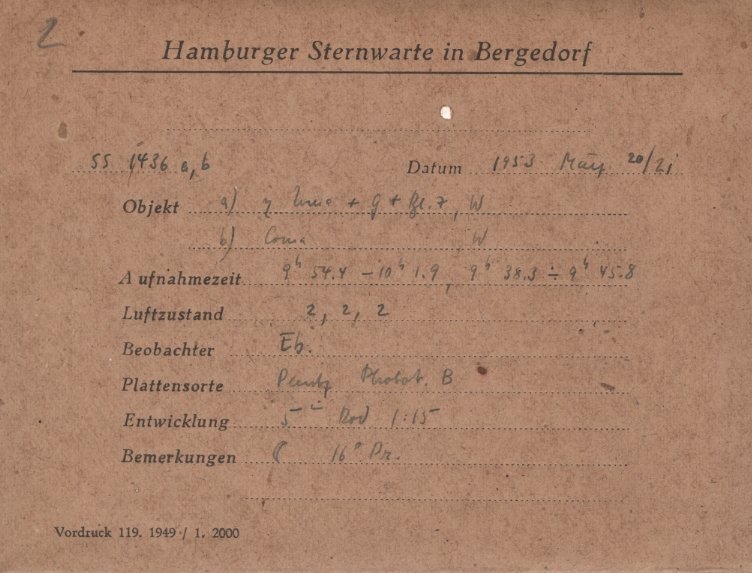 2
Hamburger Sternwarte in Bergedorf
SS 1436 a, b Datum 1953 März 20/21
Objekt a) η + G + Bl. 7, W
b) Coma , W
Aufnahmezeit 9h 54.4 – 10h 1.9, 9h 38.3 ÷ 9h 45.8
Luftzustand 2, 2, 2
Beobachter Eb.
Plattensorte B
Entwicklung 5 Rod 1:15
Bemerkungen ☾ 16° Pr.
Vordruck 119. 1949 / 1. 2000